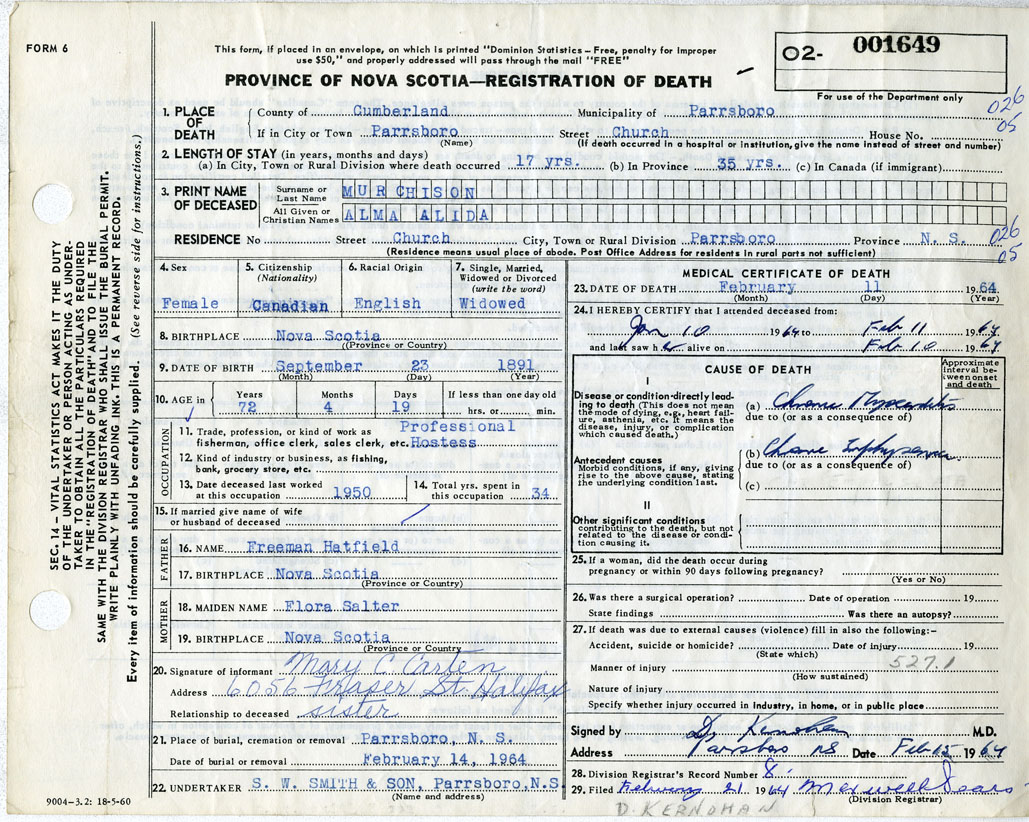 FORM 6
This form, if placed in an envelope, on which is printed "Dominion Statistics – Free, penalty for improper
use $50," and properly addressed will pass through the mail "FREE"
O2- 001649
PROVINCE OF NOVA SCOTIA—REGISTRATION OF DEATH
For use of the Department only
026
05
1. PLACE OF DEATH
County of Cumberland Municipality of Parrsboro
If in City or Town Parrsboro Street Church House No.
(Name) (If death occurred in a hospital or institution, give the name instead of street and number)
2. LENGTH OF STAY (in years, months and days)
(a) In City, Town or Rural Division where death occurred 17 yrs. (b) In Province 35 yrs. (c) In Canada (if immigrant)
3. PRINT NAME OF DECEASED
Surname or Last Name MURCHISON
All Given or Christian Names ALMA ALIDA
RESIDENCE No Street Church City, Town or Rural Division Parrsboro Province N. S.
026
05
(Residence means usual place of abode. Post Office Address for residents in rural parts not sufficient)
4. Sex
Female
5. Citizenship (Nationality)
Canadian
6. Racial Origin
English
7. Single, Married, Widowed or Divorced (write the word)
Widowed
8. BIRTHPLACE Nova Scotia
(Province or Country)
9. DATE OF BIRTH September 23 1891
(Month) (Day) (Year)
10. AGE in Years 72 Months 4 Days 19 If less than one day old hrs. or min.
OCCUPATION
11. Trade, profession, or kind of work as Professional
fisherman, office clerk, sales clerk, etc. Hostess
12. Kind of industry or business, as fishing,
bank, grocery store, etc.
13. Date deceased last worked at this occupation 1950
14. Total yrs. spent in this occupation 34
15. If married give name of wife
or husband of deceased
FATHER
16. NAME Freeman Hatfield
17. BIRTHPLACE Nova Scotia
(Province or Country)
MOTHER
18. MAIDEN NAME Flora Salter
19. BIRTHPLACE Nova Scotia
(Province or Country
20. Signature of informant Mary C. Carten
Address 6056 Fraser St. Halifax
Relationship to deceased sister
21. Place of burial, cremation or removal Parrsboro, N. S.
Date of burial or removal February 14, 1964
22. UNDERTAKER S. W. SMITH & SON, Parrsboro, N.S.
(Name and address)
MEDICAL CERTIFICATE OF DEATH
23. DATE OF DEATH February 11 1964
(Month) (Day) (Year)
24. I HEREBY CERTIFY that I attended deceased from:
Jan 10 1964 to Feb 11 1964
and last saw her alive on Feb 10 1964
CAUSE OF DEATH
Approximate interval between onset and death
I
Disease or condition directly leading to death (This does not mean the mode of dying, e.g., heart failure, asthenia, etc. It means the disease, injury, or complication which caused death.)
(a) Chronic Myocarditis
due to (or as a consequence of)
Antecedent causes
Morbid conditions, if any, giving rise to the above cause, stating the underlying condition last.
(b) Chronic Emphysema
due to (or as a consequence of)
(c)
II
Other significant conditions
contributing to the death, but not related to the disease or condition causing it.
25. If a woman, did the death occur during
pregnancy or within 90 days following pregnancy?
(Yes or No)
26. Was there a surgical operation? Date of operation 19
State findings Was there an autopsy?
27. If death was due to external causes (violence) fill in also the following:–
Accident, suicide or homicide? Date of injury 19
(State which) 527.1
Manner of injury
(How sustained)
Nature of injury
Specify whether injury occurred in Industry, in home, or in public place
Signed by D. Kernohan M.D.
Address Parrsboro NS Date Feb 15 1964
28. Division Registrar's Record Number 8
29. Filed February 21 1964 Maxwell Sears
(Division Registrar)
D. KERNOHAN
SEC. 14 – VITAL STATISTICS ACT MAKES IT THE DUTY
OF THE UNDERTAKER OR PERSON ACTING AS UNDER-
TAKER TO OBTAIN ALL THE PARTICULARS REQUIRED
IN THE "REGISTRATION OF DEATH" AND TO FILE THE
SAME WITH THE DIVISION REGISTRAR WHO SHALL ISSUE THE BURIAL PERMIT.
WRITE PLAINLY WITH UNFADING INK. THIS IS A PERMANENT RECORD.
Every item of information should be carefully supplied. (See reverse side for instructions.)
9004–3.2: 18-5-60